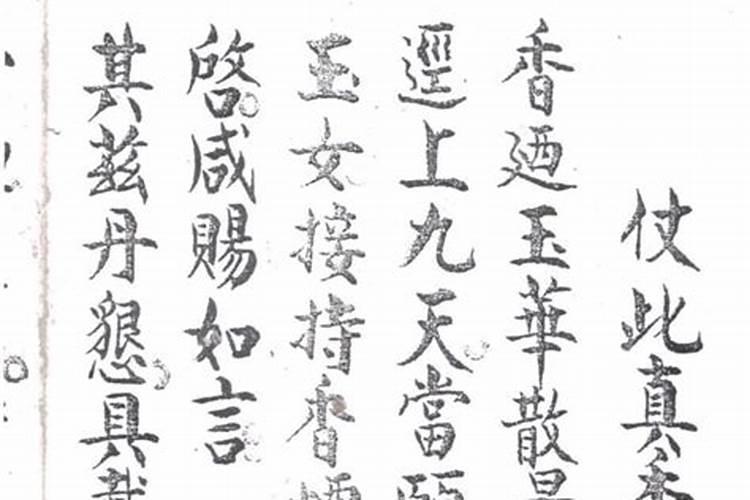 仗此真香
香廼玉華散景
逕上九天當願
玉女接持香煙
啓咸賜如言
其茲丹懇具載